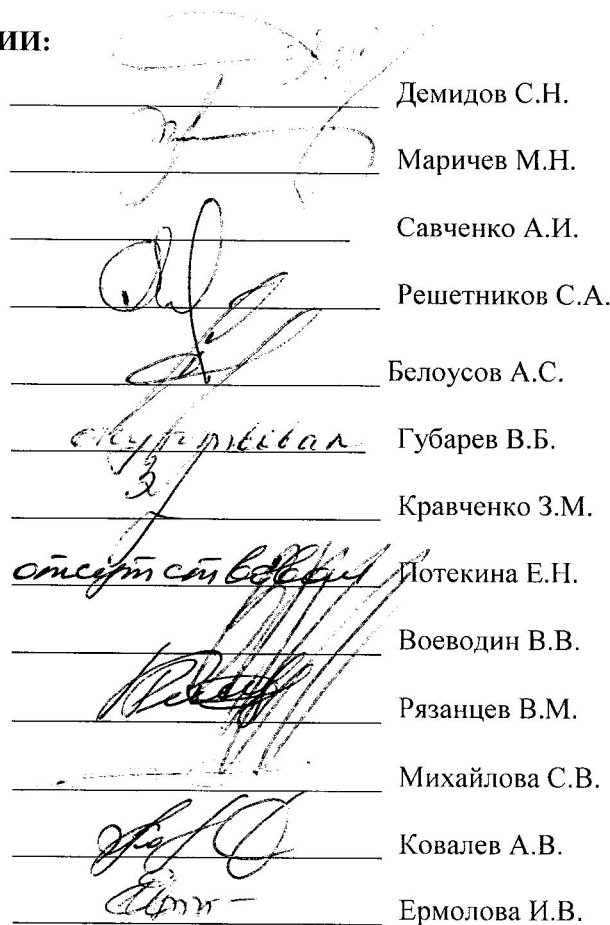 ИИ:
Демидов С.Н.
Маричев М.Н.
Савченко А.И.
Решетников С.А.
Белоусов А.С.
отсутствовал Губарев В.Б.
Кравченко З.М.
отсутствовал Потекина Е.Н.
Воеводин В.В.
Рязанцев В.М.
Михайлова С.В.
Ковалев А.В.
Ермолова И.В.